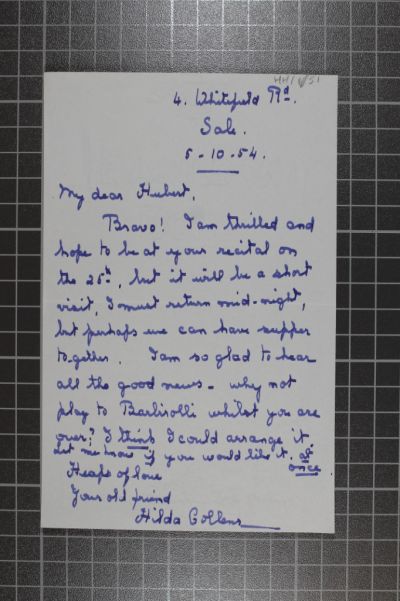 HH1/ /51
4. Whitefield Rd.
Sale.
5-10-54.
My dear Hubert,
Bravo! I am thrilled and
hope to be at your recital on
the 25th, but it will be a short
visit, I must return mid-night,
but perhaps we can have supper
together. I am so glad to hear
all the good news - why not
play to Barbirolli whilst you are
over? I think I could arrange it.
Let me know if you would like it. at
once
Heaps of love
Your old friend
Hilda Collens